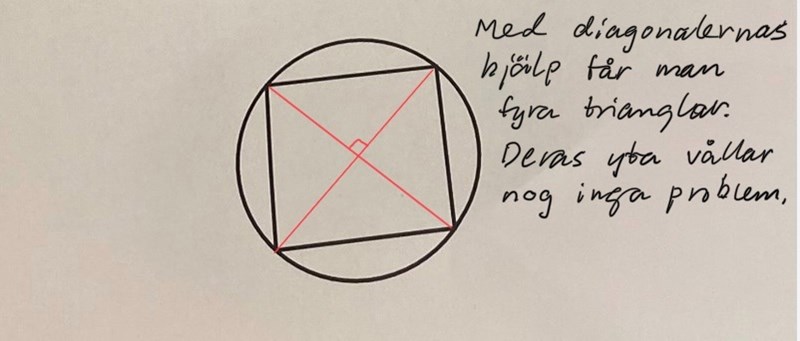 Med diagonalernas
hjälp får man
fyra trianglar.
Deras yta vållar
nog inga problem.